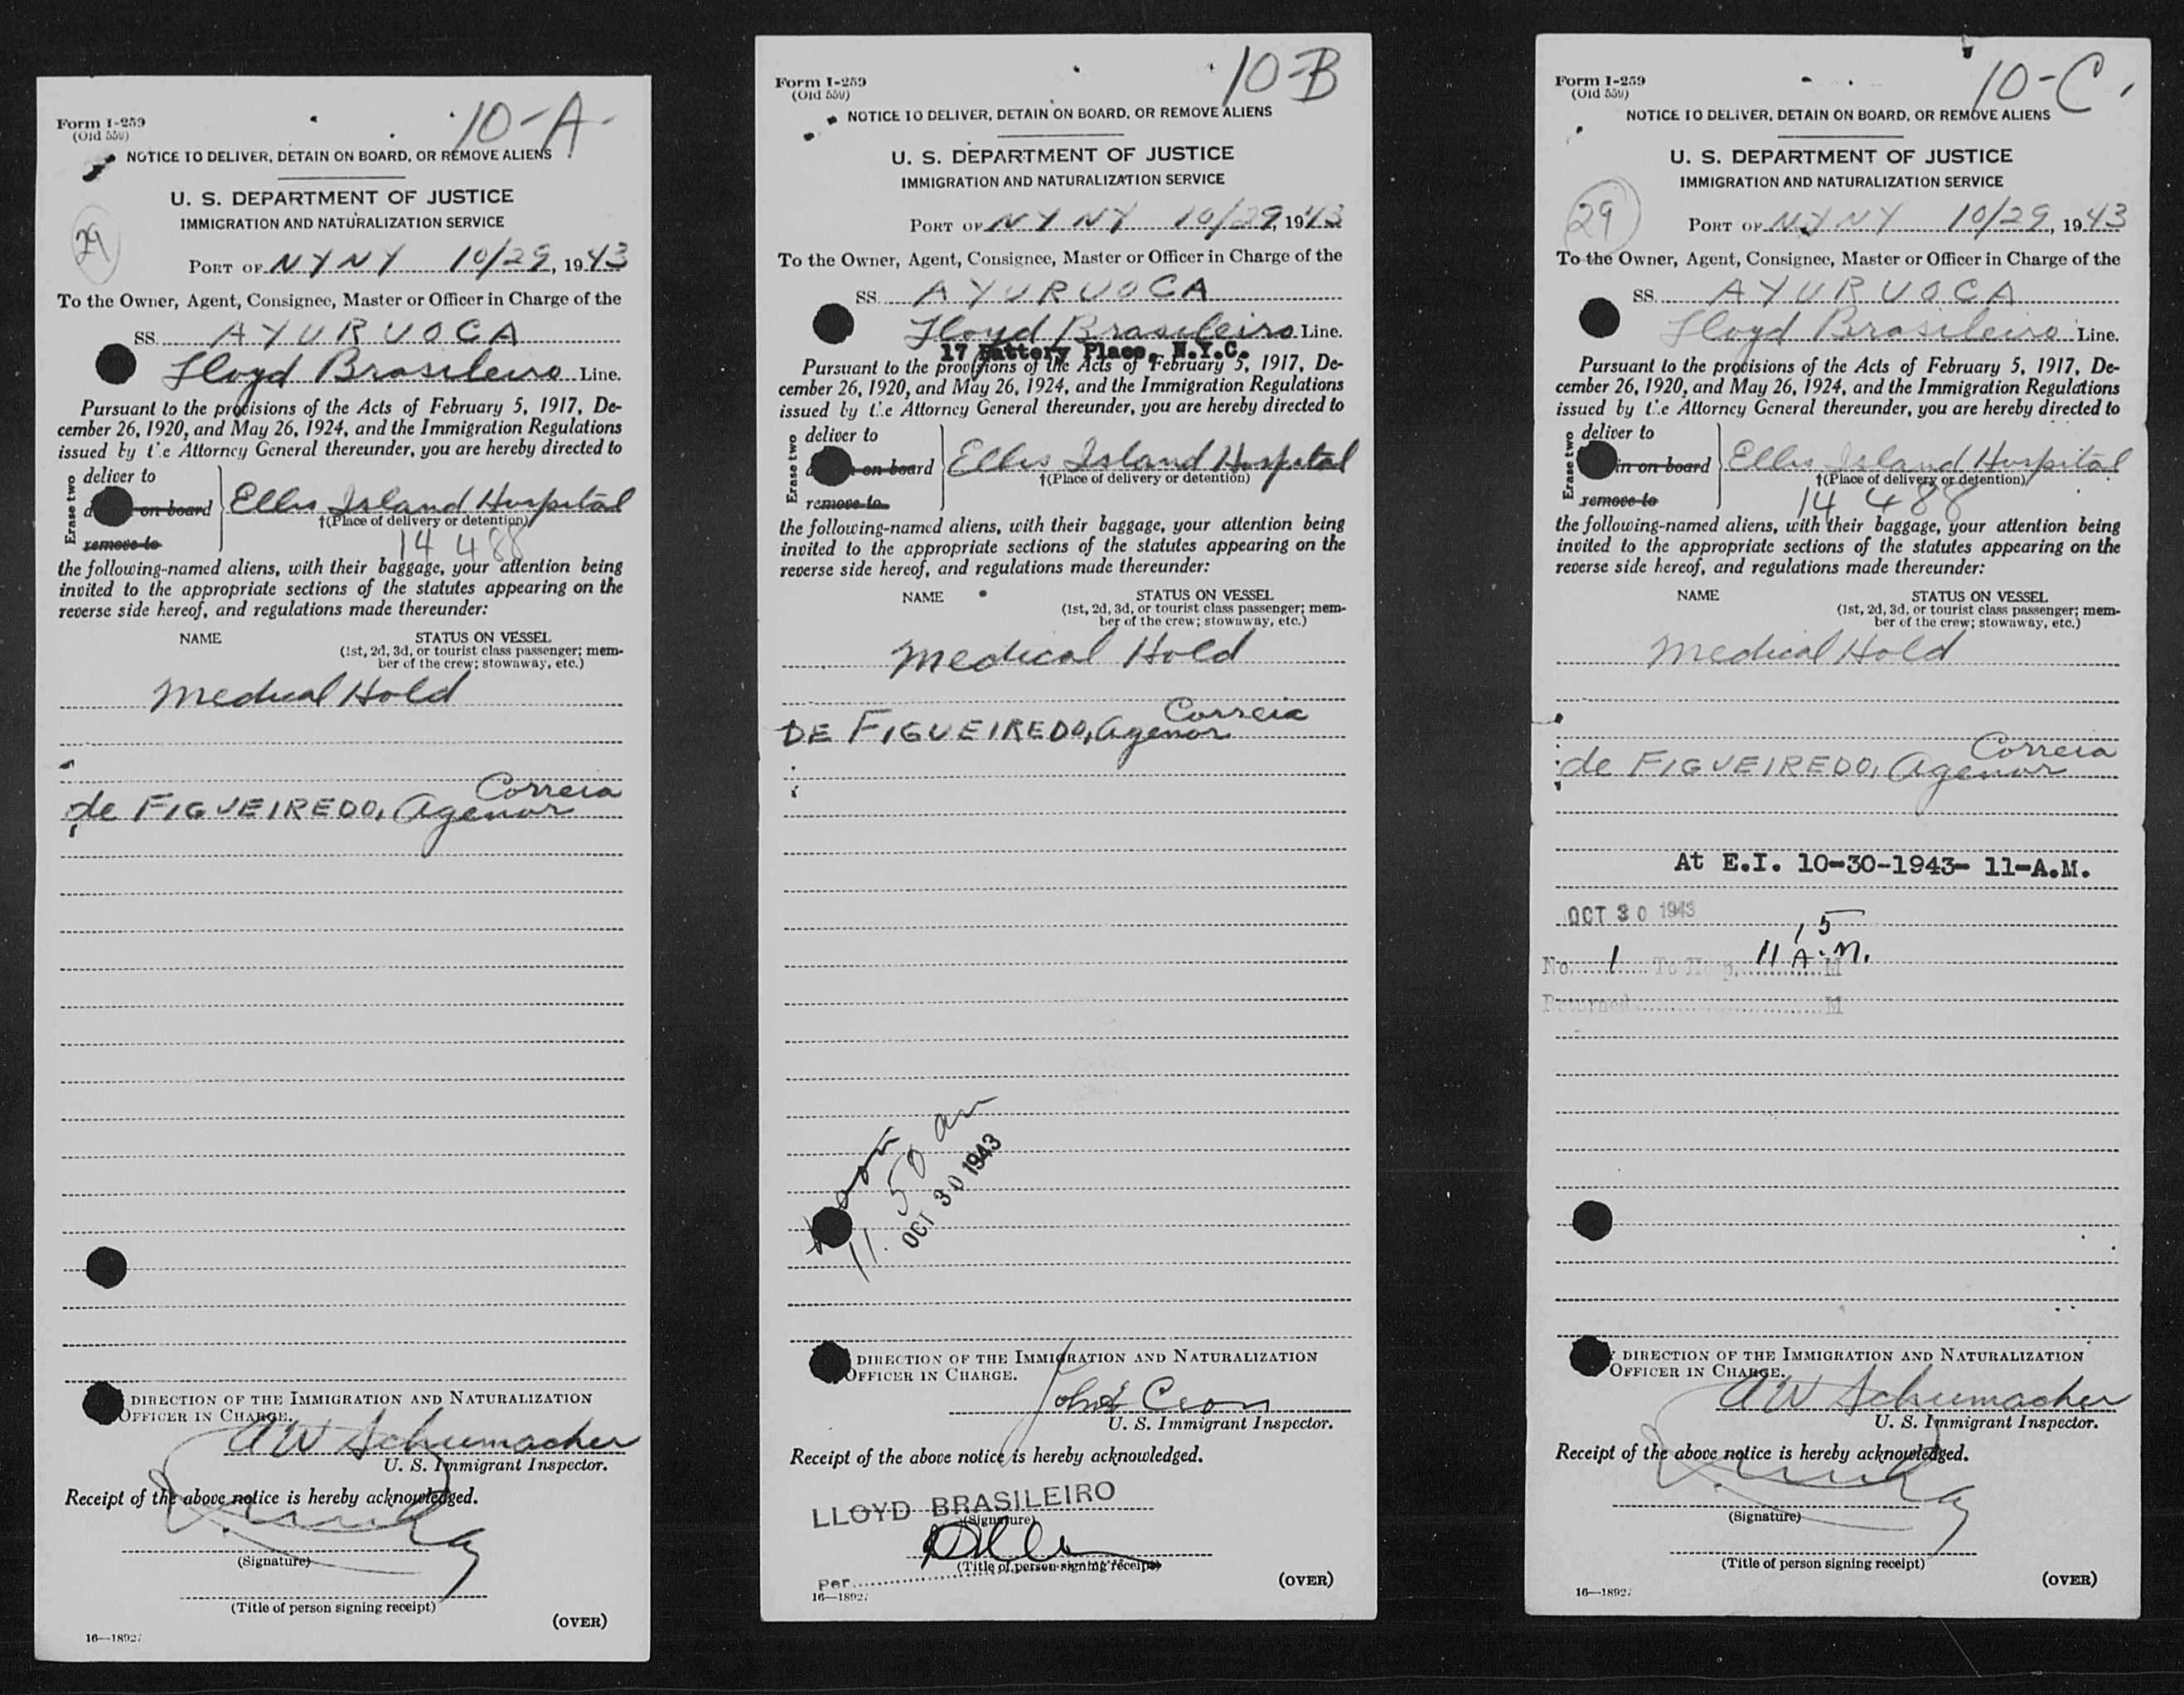 10-A
Form I-259
(Old 559)
NOTICE TO DELIVER, DETAIN ON BOARD, OR REMOVE ALIENS
U. S. DEPARTMENT OF JUSTICE
IMMIGRATION AND NATURALIZATION SERVICE
29
PORT OF N Y N Y 10/29, 1943
To the Owner, Agent, Consignee, Master or Officer in Charge of the
SS. AYURUOCA
Lloyd Brasileiro Line.
Pursuant to the provisions of the Acts of February 5, 1917, De-
cember 26, 1920, and May 26, 1924, and the Immigration Regulations
issued by the Attorney General thereunder, you are hereby directed to
Erase two
deliver to
on board
remove to
Ellis Island Hospital
†(Place of delivery or detention)
14 488
the following-named aliens, with their baggage, your attention being
invited to the appropriate sections of the statutes appearing on the
reverse side hereof, and regulations made thereunder:
NAME STATUS ON VESSEL
(1st, 2d, 3d, or tourist class passenger; mem-
ber of the crew; stowaway, etc.)
Medical Hold
Correia
de FIGUEIREDO, Agenor
DIRECTION OF THE IMMIGRATION AND NATURALIZATION
OFFICER IN CHARGE.
A W Schumacher
U. S. Immigrant Inspector.
Receipt of the above notice is hereby acknowledged.
(Signature)
(Title of person signing receipt)
(OVER)
16—18927
10-B
Form I-259
(Old 559)
NOTICE TO DELIVER, DETAIN ON BOARD, OR REMOVE ALIENS
U. S. DEPARTMENT OF JUSTICE
IMMIGRATION AND NATURALIZATION SERVICE
PORT OF N Y N Y 10/29, 1943
To the Owner, Agent, Consignee, Master or Officer in Charge of the
SS. AYURUOCA
Lloyd Brasileiro Line.
17 Battery Place, N.Y.C.
Pursuant to the provisions of the Acts of February 5, 1917, De-
cember 26, 1920, and May 26, 1924, and the Immigration Regulations
issued by the Attorney General thereunder, you are hereby directed to
Erase two
deliver to
on board
remove to
Ellis Island Hospital
†(Place of delivery or detention)
the following-named aliens, with their baggage, your attention being
invited to the appropriate sections of the statutes appearing on the
reverse side hereof, and regulations made thereunder:
NAME STATUS ON VESSEL
(1st, 2d, 3d, or tourist class passenger; mem-
ber of the crew; stowaway, etc.)
Medical Hold
Correia
DE FIGUEIREDO, Agenor
11.50 am
OCT 30 1943
DIRECTION OF THE IMMIGRATION AND NATURALIZATION
OFFICER IN CHARGE.
U. S. Immigrant Inspector.
Receipt of the above notice is hereby acknowledged.
LLOYD BRASILEIRO
(Signature)
(Title of person signing receipt)
Per
(OVER)
16—18927
10-C
Form I-259
(Old 559)
NOTICE TO DELIVER, DETAIN ON BOARD, OR REMOVE ALIENS
U. S. DEPARTMENT OF JUSTICE
IMMIGRATION AND NATURALIZATION SERVICE
29
PORT OF N Y N Y 10/29, 1943
To the Owner, Agent, Consignee, Master or Officer in Charge of the
SS. AYURUOCA
Lloyd Brasileiro Line.
Pursuant to the provisions of the Acts of February 5, 1917, De-
cember 26, 1920, and May 26, 1924, and the Immigration Regulations
issued by the Attorney General thereunder, you are hereby directed to
Erase two
deliver to
in on board
remove to
Ellis Island Hospital
†(Place of delivery or detention)
14 488
the following-named aliens, with their baggage, your attention being
invited to the appropriate sections of the statutes appearing on the
reverse side hereof, and regulations made thereunder:
NAME STATUS ON VESSEL
(1st, 2d, 3d, or tourist class passenger; mem-
ber of the crew; stowaway, etc.)
Medical Hold
Correia
de FIGUEIREDO, Agenor
At E.I. 10-30-1943- 11-A.M.
OCT 30 1943
No. 1 To Hosp. 11 15 A.M. M
Returned M
DIRECTION OF THE IMMIGRATION AND NATURALIZATION
OFFICER IN CHARGE.
A W Schumacher
U. S. Immigrant Inspector.
Receipt of the above notice is hereby acknowledged.
(Signature)
(Title of person signing receipt)
(OVER)
16—18927